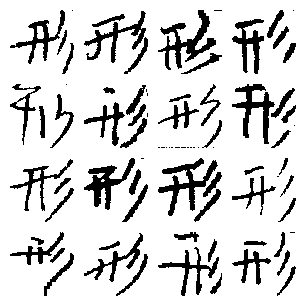 形形形形
形形形形
形形形形
形形形形